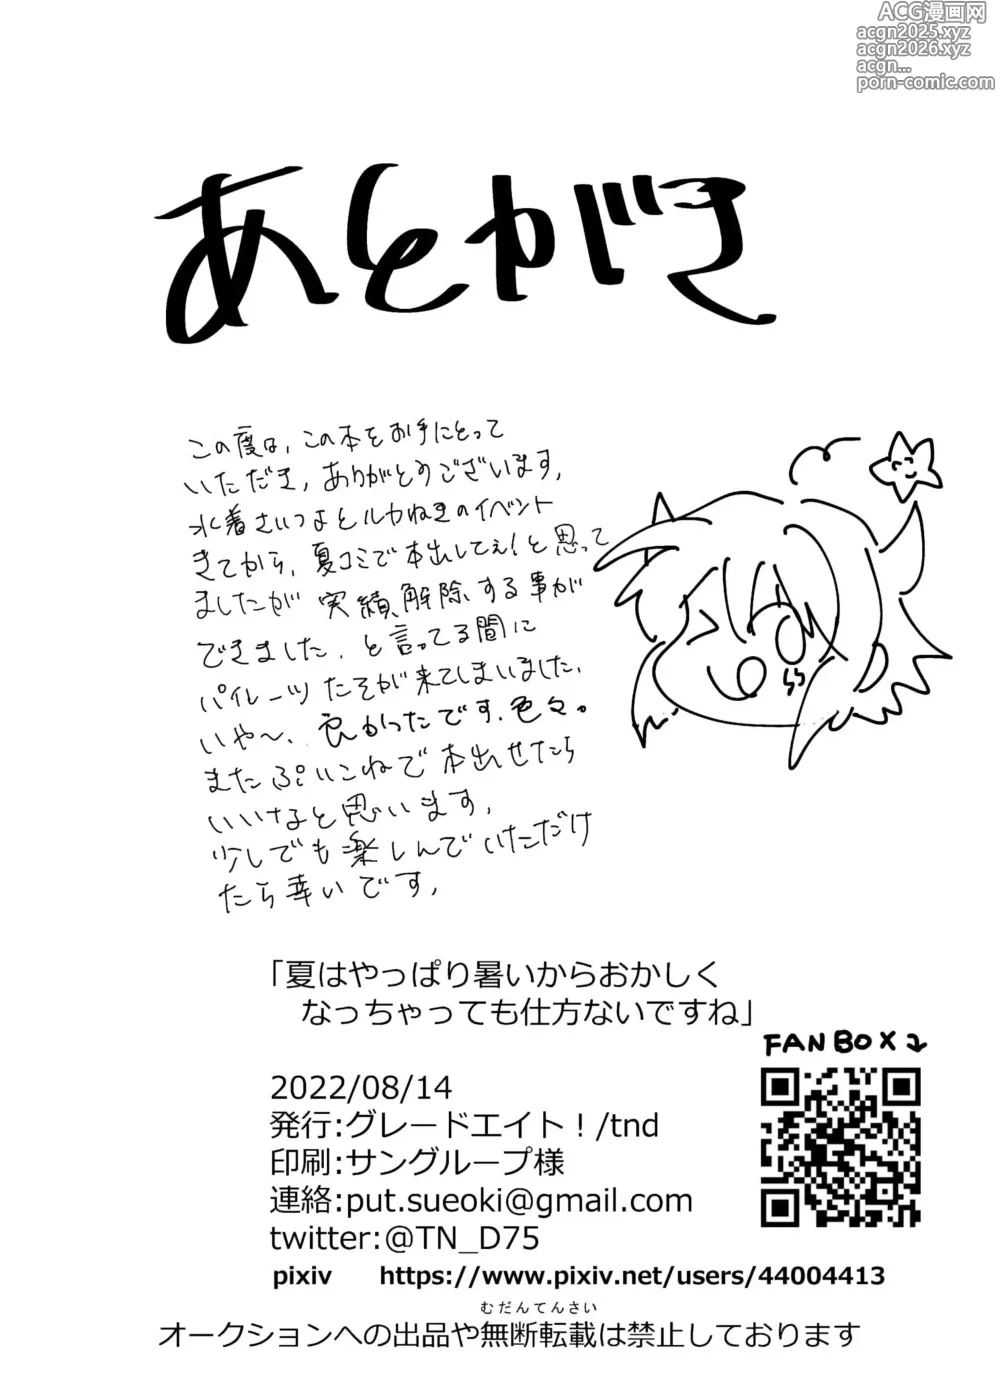 ACG漫画网
acgn2025.xyz
acgn2026.xyz
acgn...
porn-comic.com
あとがき
この度は、この本をお手にとって
いただき、ありがとうございます。
水着さいつよとルカねきのイベント
きてから、夏コミで本出してぇ!と思って
ましたが実績解除する事が
できました。と言ってる間に
パイレーツたそが来てしまいました。
いや〜、良かったです、色々。
またぷいこねで本出せたら
いいなと思います。
少しでも楽しんでいただけ
たら幸いです。
「夏はやっぱり暑いからおかしく
なっちゃっても仕方ないですね」
FANBOX
2022/08/14
発行:グレードエイト！/tnd
印刷:サングループ様
連絡:put.sueoki@gmail.com
twitter:@TN_D75
pixiv https://www.pixiv.net/users/44004413
むだんてんさい
オークションへの出品や無断転載は禁止しております